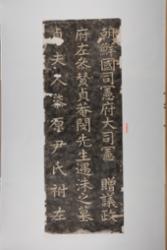 朝鮮國司憲府大司憲　贈議政
府左參贊貞菴閔先生遇洙之墓
貞夫人漆原尹氏祔左